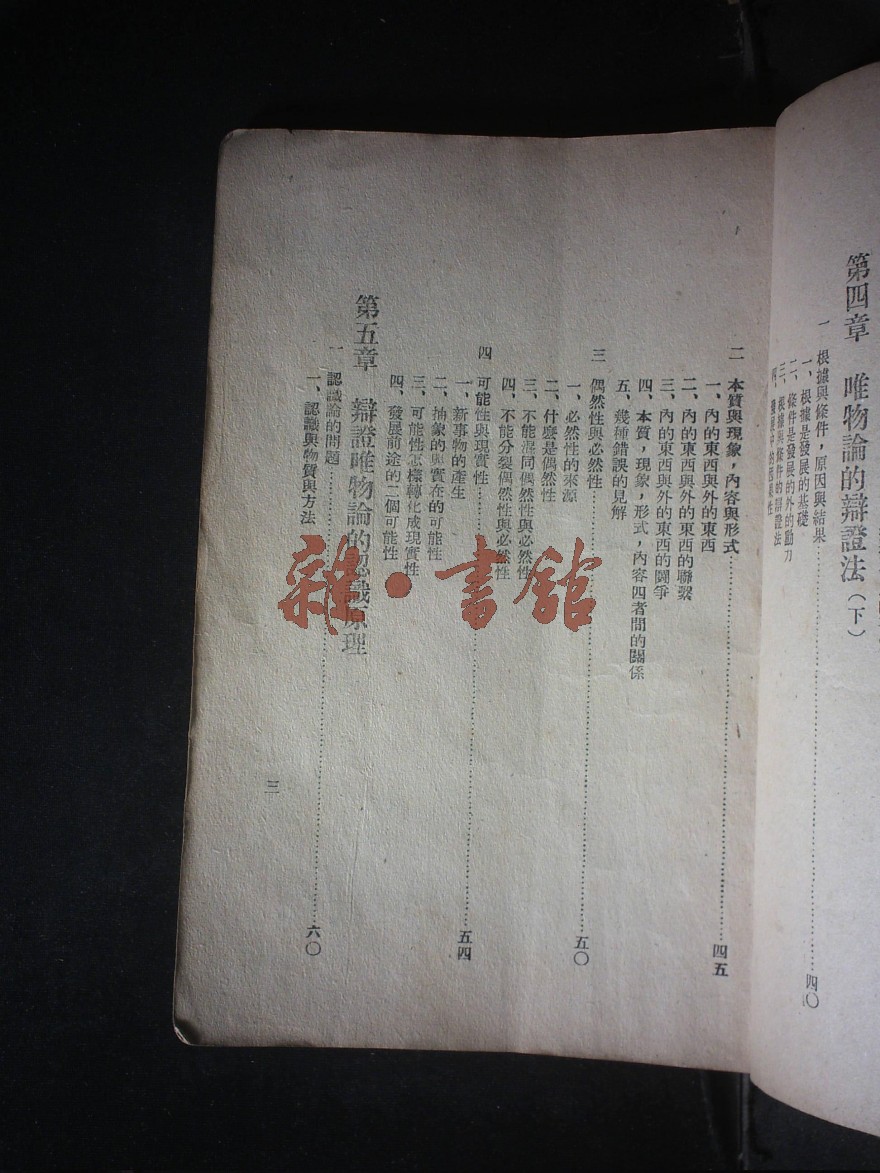 第四章　唯物論的辯證法（下）
一　根據與條件，原因與結果……四〇
一、根據是發展的基礎
二、條件是發展的外的動力
三、根據與條件的辯證法
二　本質與現象，內容與形式……四五
一、內的東西與外的東西
二、內的東西與外的東西的聯繫
三、內的東西與外的東西的鬪爭
四、本質，現象，形式，內容四者間的關係
五、幾種錯誤的見解
三　偶然性與必然性……五〇
一、必然性的來源
二、什麼是偶然性
三、不能混同偶然性與必然性
四、不能分裂偶然性與必然性
四　可能性與現實性……五四
一、新事物的產生
二、抽象的與實在的可能性
三、可能性怎樣轉化成現實性
四、發展前途的二個可能性
第五章　辯證唯物論的認識原理
一　認識論的問題……六〇
一、認識與物質與方法
三
雜·書館